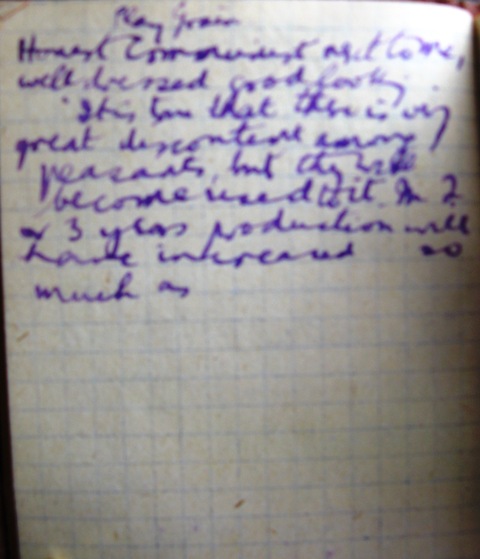 Play Grain
Honest Communist next to me,
well dressed good looking
"It is true that there is very
great discontent among
peasants, but they will
become used to it. In 2
or 3 years production will
have increased so
much as